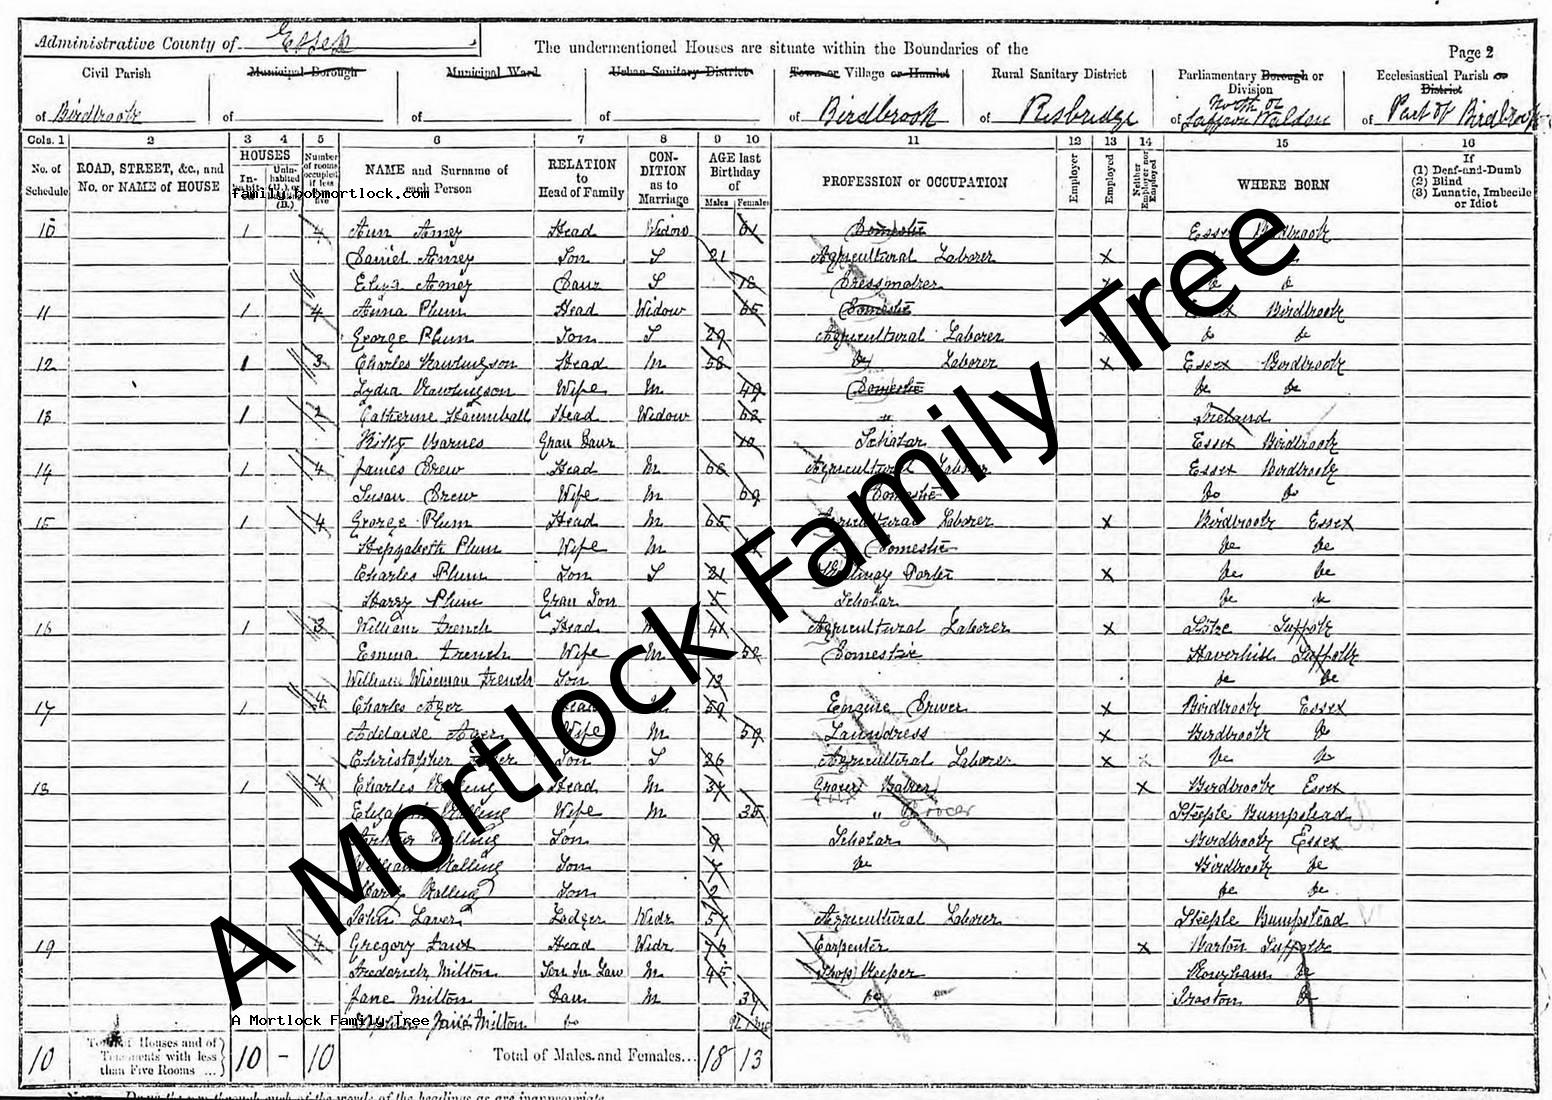 Administrative County of Essex
The undermentioned Houses are situate within the Boundaries of the
Page 2
Civil Parish Municipal Borough Municipal Ward Urban Sanitary District Town or Village or Hamlet Rural Sanitary District Parliamentary Borough or Division Ecclesiastical Parish or District
of Birdbrook of of of of Birdbrook of Risbridge of North or Saffron Walden of Part of Birdbrook
Cols. 1 2 3 4 5 6 7 8 9 10 11 12 13 14 15 16
No. of Schedule
ROAD, STREET, &c., and No. or NAME of HOUSE
HOUSES
Number of rooms occupied if less than five
NAME and Surname of each Person
RELATION to Head of Family
CONDITION as to Marriage
AGE last Birthday of
Males Females
PROFESSION or OCCUPATION
Employer
Employed
Neither Employer nor Employed
WHERE BORN
If
(1) Deaf-and-Dumb
(2) Blind
(3) Lunatic, Imbecile or Idiot
family.bobmortlock.com
10 1 4 Ann Amey Head Widow 61 Domestic Essex Birdbrook
Daniel Amey Son S 21 Agricultural Laborer X
Eliza Amey Daur S 18 Dressmaker Do Do
11 1 4 Anna Plum Head Widow 65 Domestic Essex Birdbrook
George Plum Son S 29 Agricultural Laborer Do Do
12 1 3 Charles Rawlingson Head M 58 Laborer X Essex Birdbrook
Lydia Rawlingson Wife M 49 Domestic Do Do
13 1 2 Catherine Head Widow 62 " Ireland
Kitty Barnes Gran Daur 10 Scholar Essex Birdbrook
14 1 4 James Drew Head M 66 Agricultural Laborer Essex Birdbrook
Susan Drew Wife M 69 Domestic Do Do
15 1 4 George Plum Head M 65 Agricultural Laborer X Birdbrook Essex
Hepzabeth Plum Wife M Domestic Do Do
Charles Plum Son S 21 Railway Porter X Do Do
Harry Plum Gran Son 5 Scholar Do Do
16 1 3 William French Head M 41 Agricultural Laborer X Suffolk
Emma French Wife M 52 Domestic Haverhill Suffolk
William Wiseman French Son 12 Do Do
17 1 4 Charles Ager Head M 59 Engine Driver X Birdbrook Essex
Adelaide Ager Wife M 59 Laundress X Birdbrook Do
Christopher Ager Son S 26 Agricultural Laborer X Do Do
18 1 4 Charles Head M 37 Grocer Baker X Birdbrook Essex
Elizabeth Wife M 35 " Grocer Steeple Bumpstead
Arthur Son 9 Scholar Birdbrook Essex
William Son 7 Do Birdbrook Do
Harry Son 2 Do Do
John Laver Lodger Widr 57 Agricultural Laborer Steeple Bumpstead
19 1 4 Gregory Head Widr 76 Carpenter X Barton Suffolk
Frederick Milton Son in Law M 45 Shop Keeper Rougham Do
Jane Milton Daur M 37 Do Do
Jane Milton Do
A Mortlock Family Tree
10 Total of Houses and of Tenements with less than Five Rooms ... 10 – 10 Total of Males and Females... 18 13
A Mortlock Family Tree